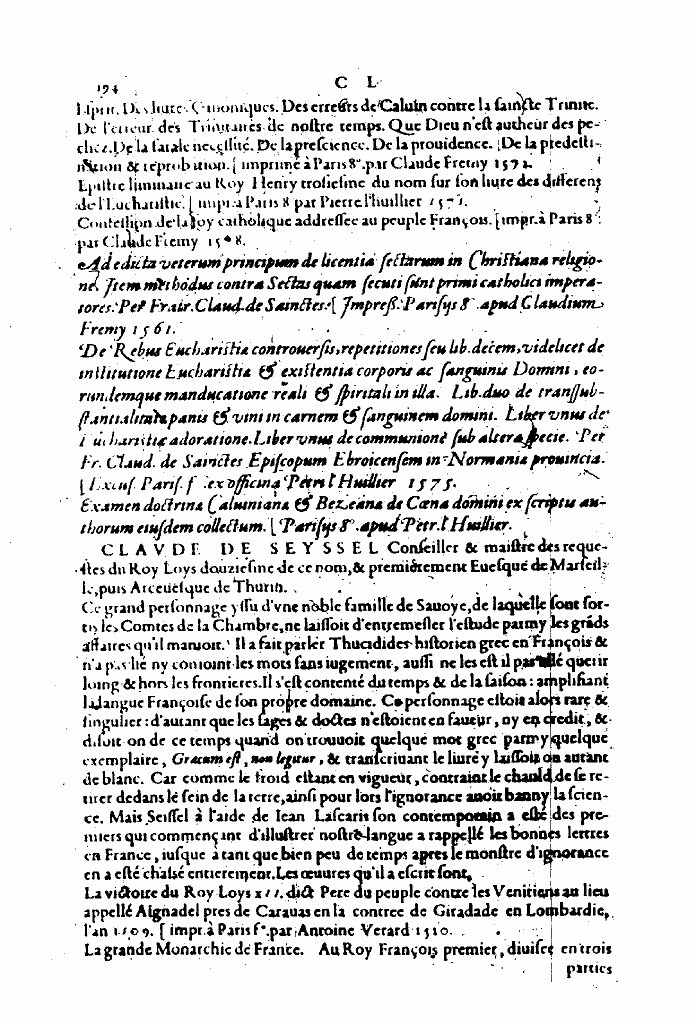 194 C L
Des liures Canoniques. Des erreurs de Caluin contre la saincte Trinite.
De l'erreur des Trinitaires de nostre temps. Que Dieu n'est autheur des pe-
chez. De la fatale necessité. De la prescience. De la prouidence. De la predesti-
nation & reprobation. [imprimé à Paris 8°. par Claude Fremy 1572.
Epistre liminaire au Roy Henry troisiesme du nom sur son liure des differens
de l'Eucharistie. [impr. à Paris 8 par Pierre l'huillier 157
Confession de la foy catholique addressee au peuple François. [impr. à Paris 8°.
par Claude Fremy
Ad edicta veterum principum de licentia sectarum in Christiana religio-
ne. Item methodus contra Sectas quam secuti sunt primi catholici impera-
tores. Per Fratr. Claud. de Sainctes. [Impress. Parisys 8. apud Claudium
Fremy 1561.
De Rebus Eucharistia controuersis, repetitiones seu lib. decem, videlicet de
institutione Eucharistia & existentia corporis ac sanguinis Domini, eo-
rundemque manducatione reali & spiritali in illa. Lib. duo de transsub-
stantialitate panis & vini in carnem & sanguinem domini. Liber vnus de
Eucharistia adoratione. Liber vnus de communione sub altera specie. Per
Fr. Claud. de Sainctes Episcopum Ebroicensem in Normania prouincia.
[Excus. Paris. f. ex officina Petri l'Huillier 1575.
Examen doctrina Caluiniana & Bezeana de Cœna domini ex scriptis au-
thorum eiusdem collectum. [Parisys 8°. apud Petr. l'Huillier.
CLAVDE DE SEYSSEL Conseiller & maistre des reque-
stes du Roy Loys douziesme de ce nom, & premierement Euesque de Marseil-
le, puis Arceuesque de Thurin.
Ce grand personnage yssu d'vne noble famille de Sauoye, de laquelle sont sor-
tis les Comtes de la Chambre, ne laissoit d'entremesler l'estude parmy les grāds
affaires qu'il manioit. Il a fait parler Thucidides historien grec en François &
n'a pas lié ny conioint les mots sans iugement, aussi ne les est il pas allé querir
loing & hors les frontieres. Il s'est contenté du temps & de la saison: amplifiant
la langue Françoise de son propre domaine. Ce personnage estoit alors rare &
singulier: d'autant que les sages & doctes n'estoient en faueur, ny en credit, &
disoit on de ce temps quand on trouuoit quelque mot grec parmy quelque
exemplaire, Græcum est, non legitur, & transcriuant le liure y laissoit on autant
de blanc. Car comme le froid estant en vigueur, contraint le chauld de se re-
tirer dedans le sein de la terre, ainsi pour lors l'ignorance auoit banny la scien-
ce. Mais Seissel à l'aide de Iean Lascaris son contemporain a esté des pre-
miers qui commençant d'illustrer nostre langue a rappellé les bonnes lettres
en France, iusque à tant que bien peu de temps apres le monstre d'ignorance
en a esté chassé entierement. Les œuures qu'il a escrit sont,
La victoire du Roy Loys XII. dict Pere du peuple contre les Venitiens au lieu
appellé Aignadel pres de Carauas en la contree de Giradade en Lombardie,
l'an 1509. [impr. à Paris f°. par Antoine Verard 1510.
La grande Monarchie de France. Au Roy François premier, diuisee en trois
parties